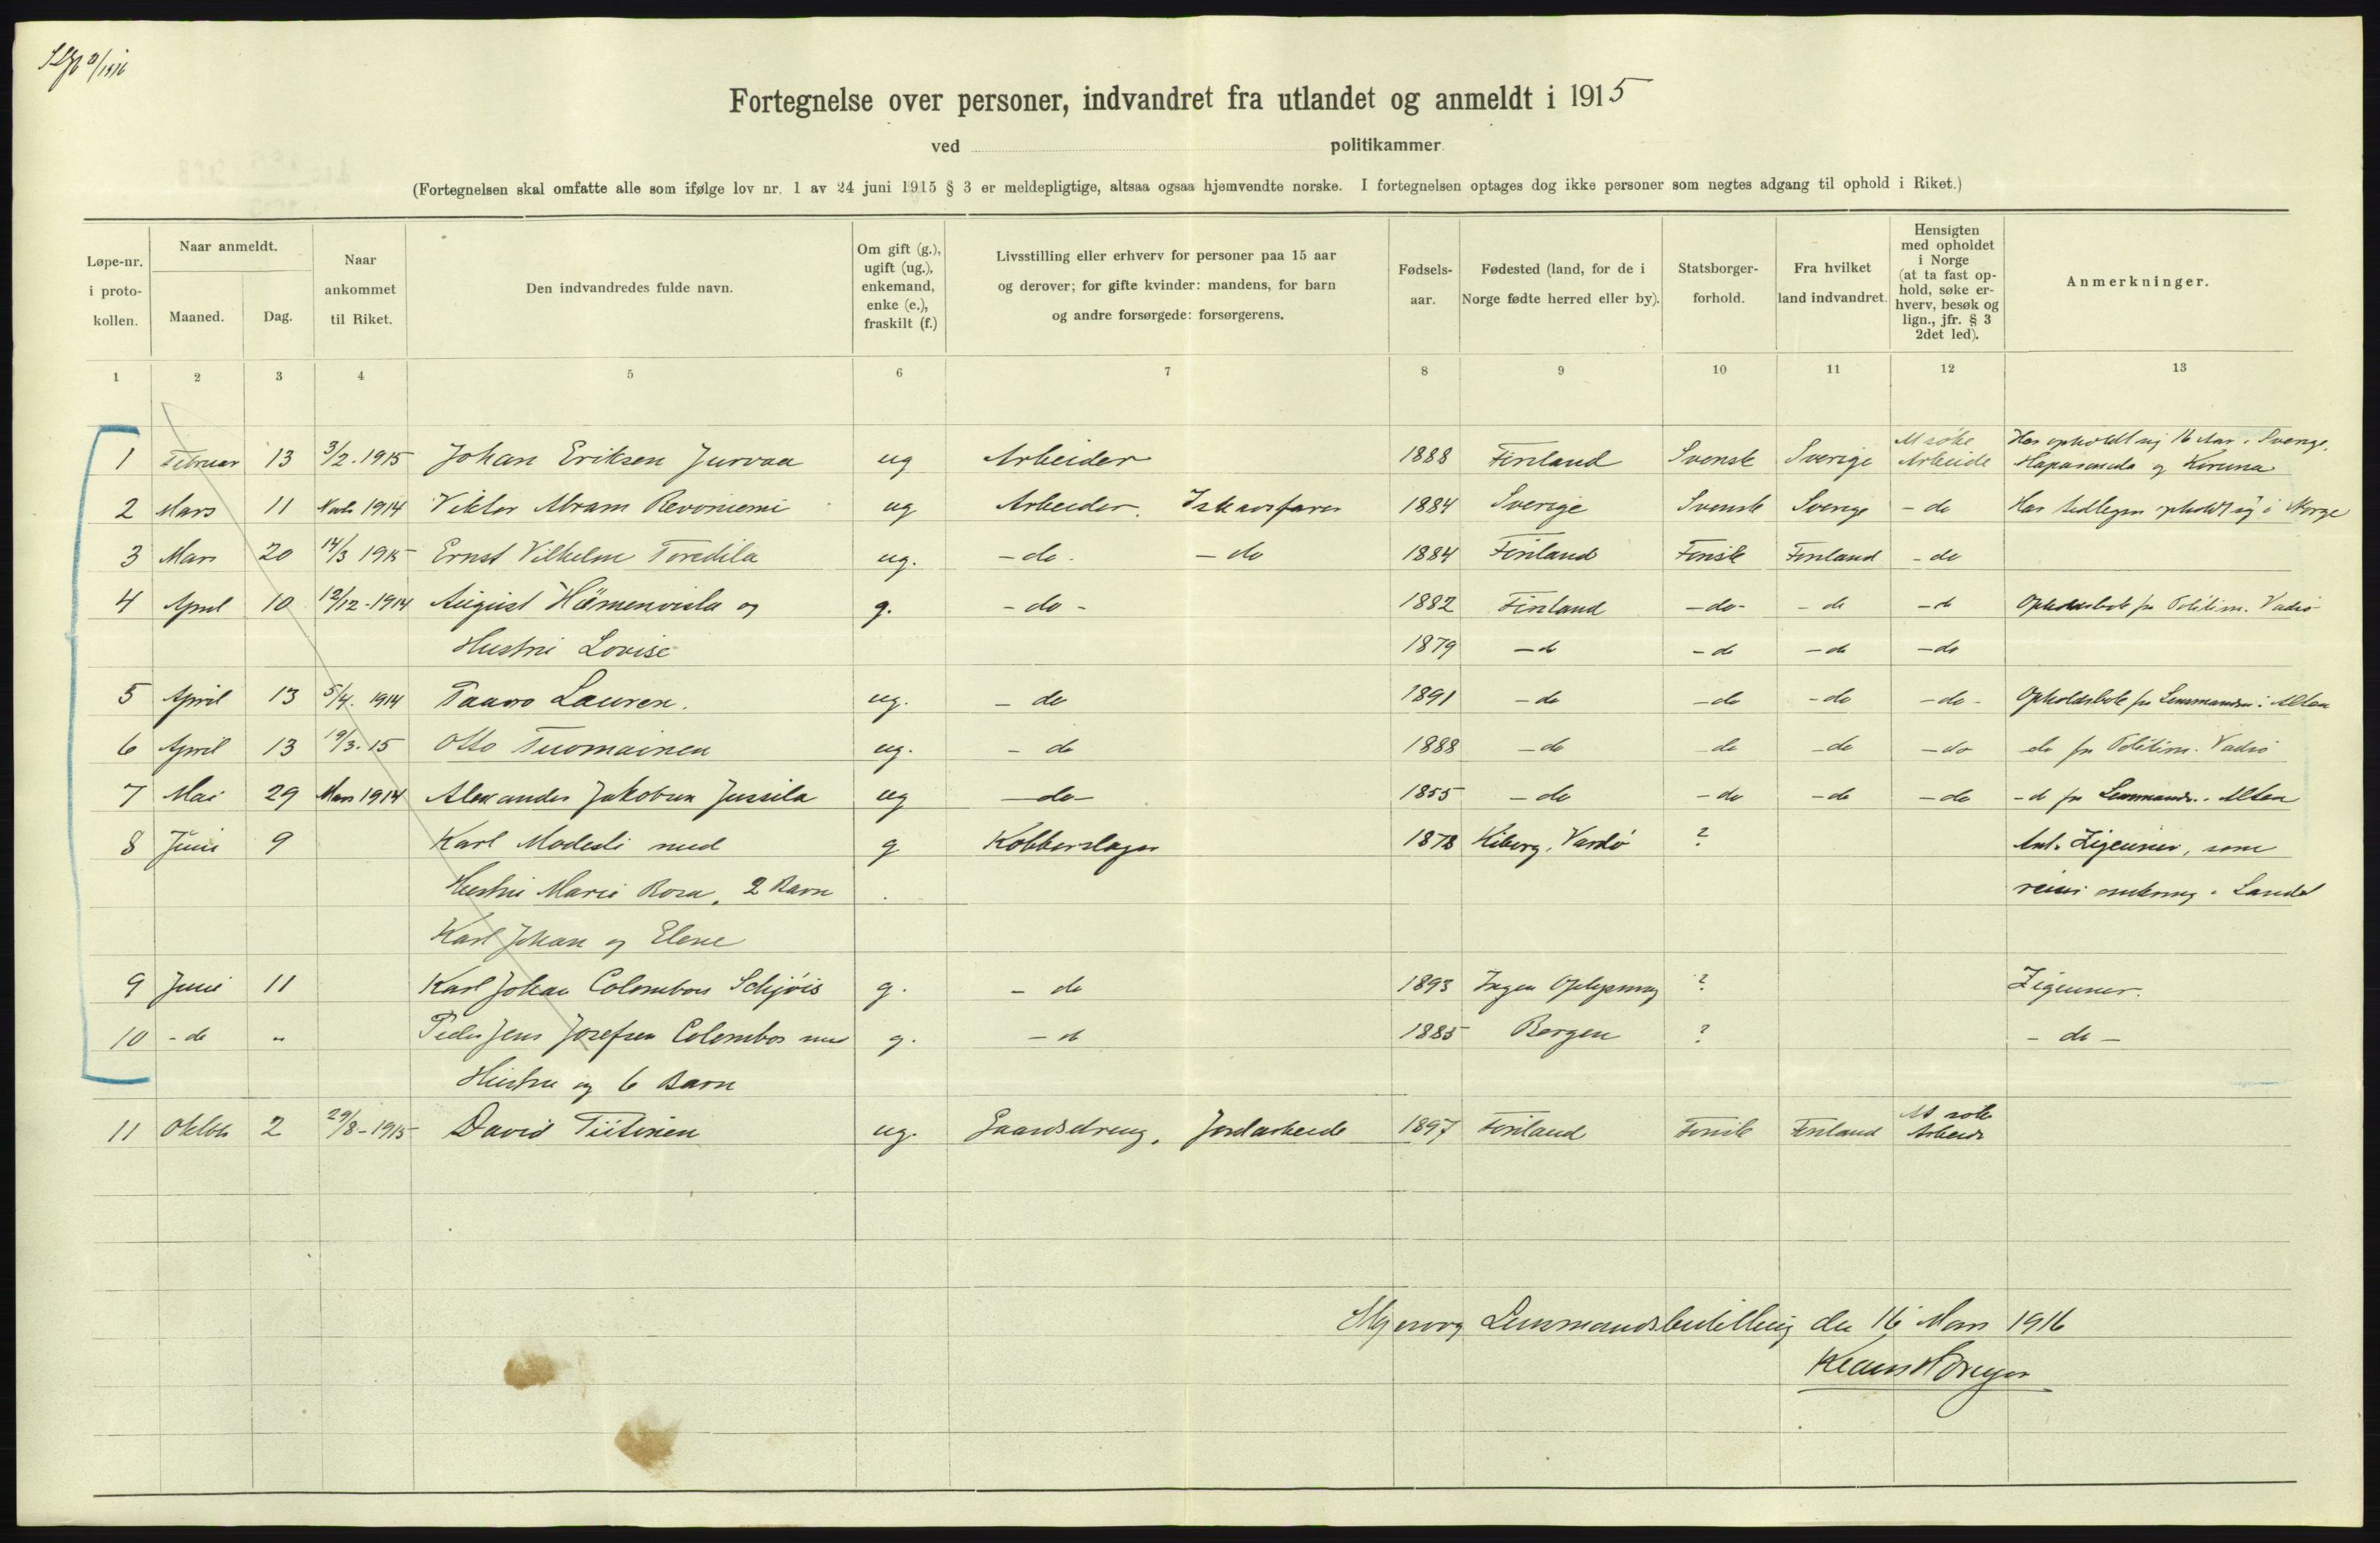 Fortegnelse over personer, indvandret fra utlandet og anmeldt i 1915
ved politikammer
(Fortegnelsen skal omfatte alle som ifølge lov nr. 1 av 24 juni 1915 § 3 er meldepligtige, altsaa ogsaa hjemvendte norske. I fortegnelsen optages dog ikke personer som negtes adgang til ophold i Riket.)
Løpe-nr. i proto- kollen.
Naar anmeldt.
Maaned. Dag.
Naar ankommet til Riket.
Den indvandredes fulde navn.
Om gift (g.), ugift (ug.), enkemand, enke (e.), fraskilt (f.)
Livsstilling eller erhverv for personer paa 15 aar og derover; for gifte kvinder: mandens, for barn og andre forsørgede: forsørgerens.
Fødsels- aar.
Fødested (land, for de i Norge fødte herred eller by).
Statsborger- forhold.
Fra hvilket land indvandret.
Hensigten med opholdet i Norge (at ta fast op- hold, søke er- hverv, besøk og lign., jfr. § 3 2det led).
Anmerkninger.
1 2 3 4 5 6 7 8 9 10 11 12 13
At søke Har opholdt sig 16 Aar i Sverige,
1 Februar 13 3/2. 1915 Johan Eriksen Jurvaa ug Arbeider 1888 Finland Svensk Sverige Arbeide Haparanda og Kiruna
2 Mars 11 1914 Viktor Abram Revoniemi ug Arbeider. 1884 Sverige Svensk Sverige - do Har tidligere opholdt sig i Norge
3 Mars 20 14/3 1915 Ernst Vilhelm Toredila ug. - do - - do 1884 Finland Finsk Finland - do
4 April 10 12/12-1914 August og g. - do - 1882 Finland - do - - do - do Opholdsbok fra Politim. Vadsø
Hustru Lovise 1879 - do - do - do - do
5 April 13 5/4. 1914 Taavo Lauren. ug. - do 1891 - do - do - do - do - Opholdsbok fra Lensmanden i Alten
6 April 13 19/3. 15 Otto Tuomainen ug. - do 1888 - do do - do - do do fra Politim. Vadsø
7 Mai 29 Mars 1914 Alexander Jakobsen Jussila ug - do - 1855 - do - do - do - do - do fra Lensmand. i Alten
8 Juni 9 Karl Modesti med g Kobberslager 1878 Kiberg, Vardø ? Ant. Zigeuner, som
Hustru Marie Rosa, 2 Barn reiser omkring i Landet
Karl Johan og Elene
9 Juni 11 Karl Johan Colombos g. - do 1893 Ingen Oplysning ? Zigeuner.
10 - do " Peder Jens Josefsen Colombos med g. - do 1885 Bergen ? - do -
Hustru og 6 Barn
At søke
11 Oktob 2 29/8-1915 David Tiitinen ug. Gaardsdreng, Jordarbeide 1897 Finland Finsk Finland Arbeide
Lensmandsbestilling den 16 Mars 1916